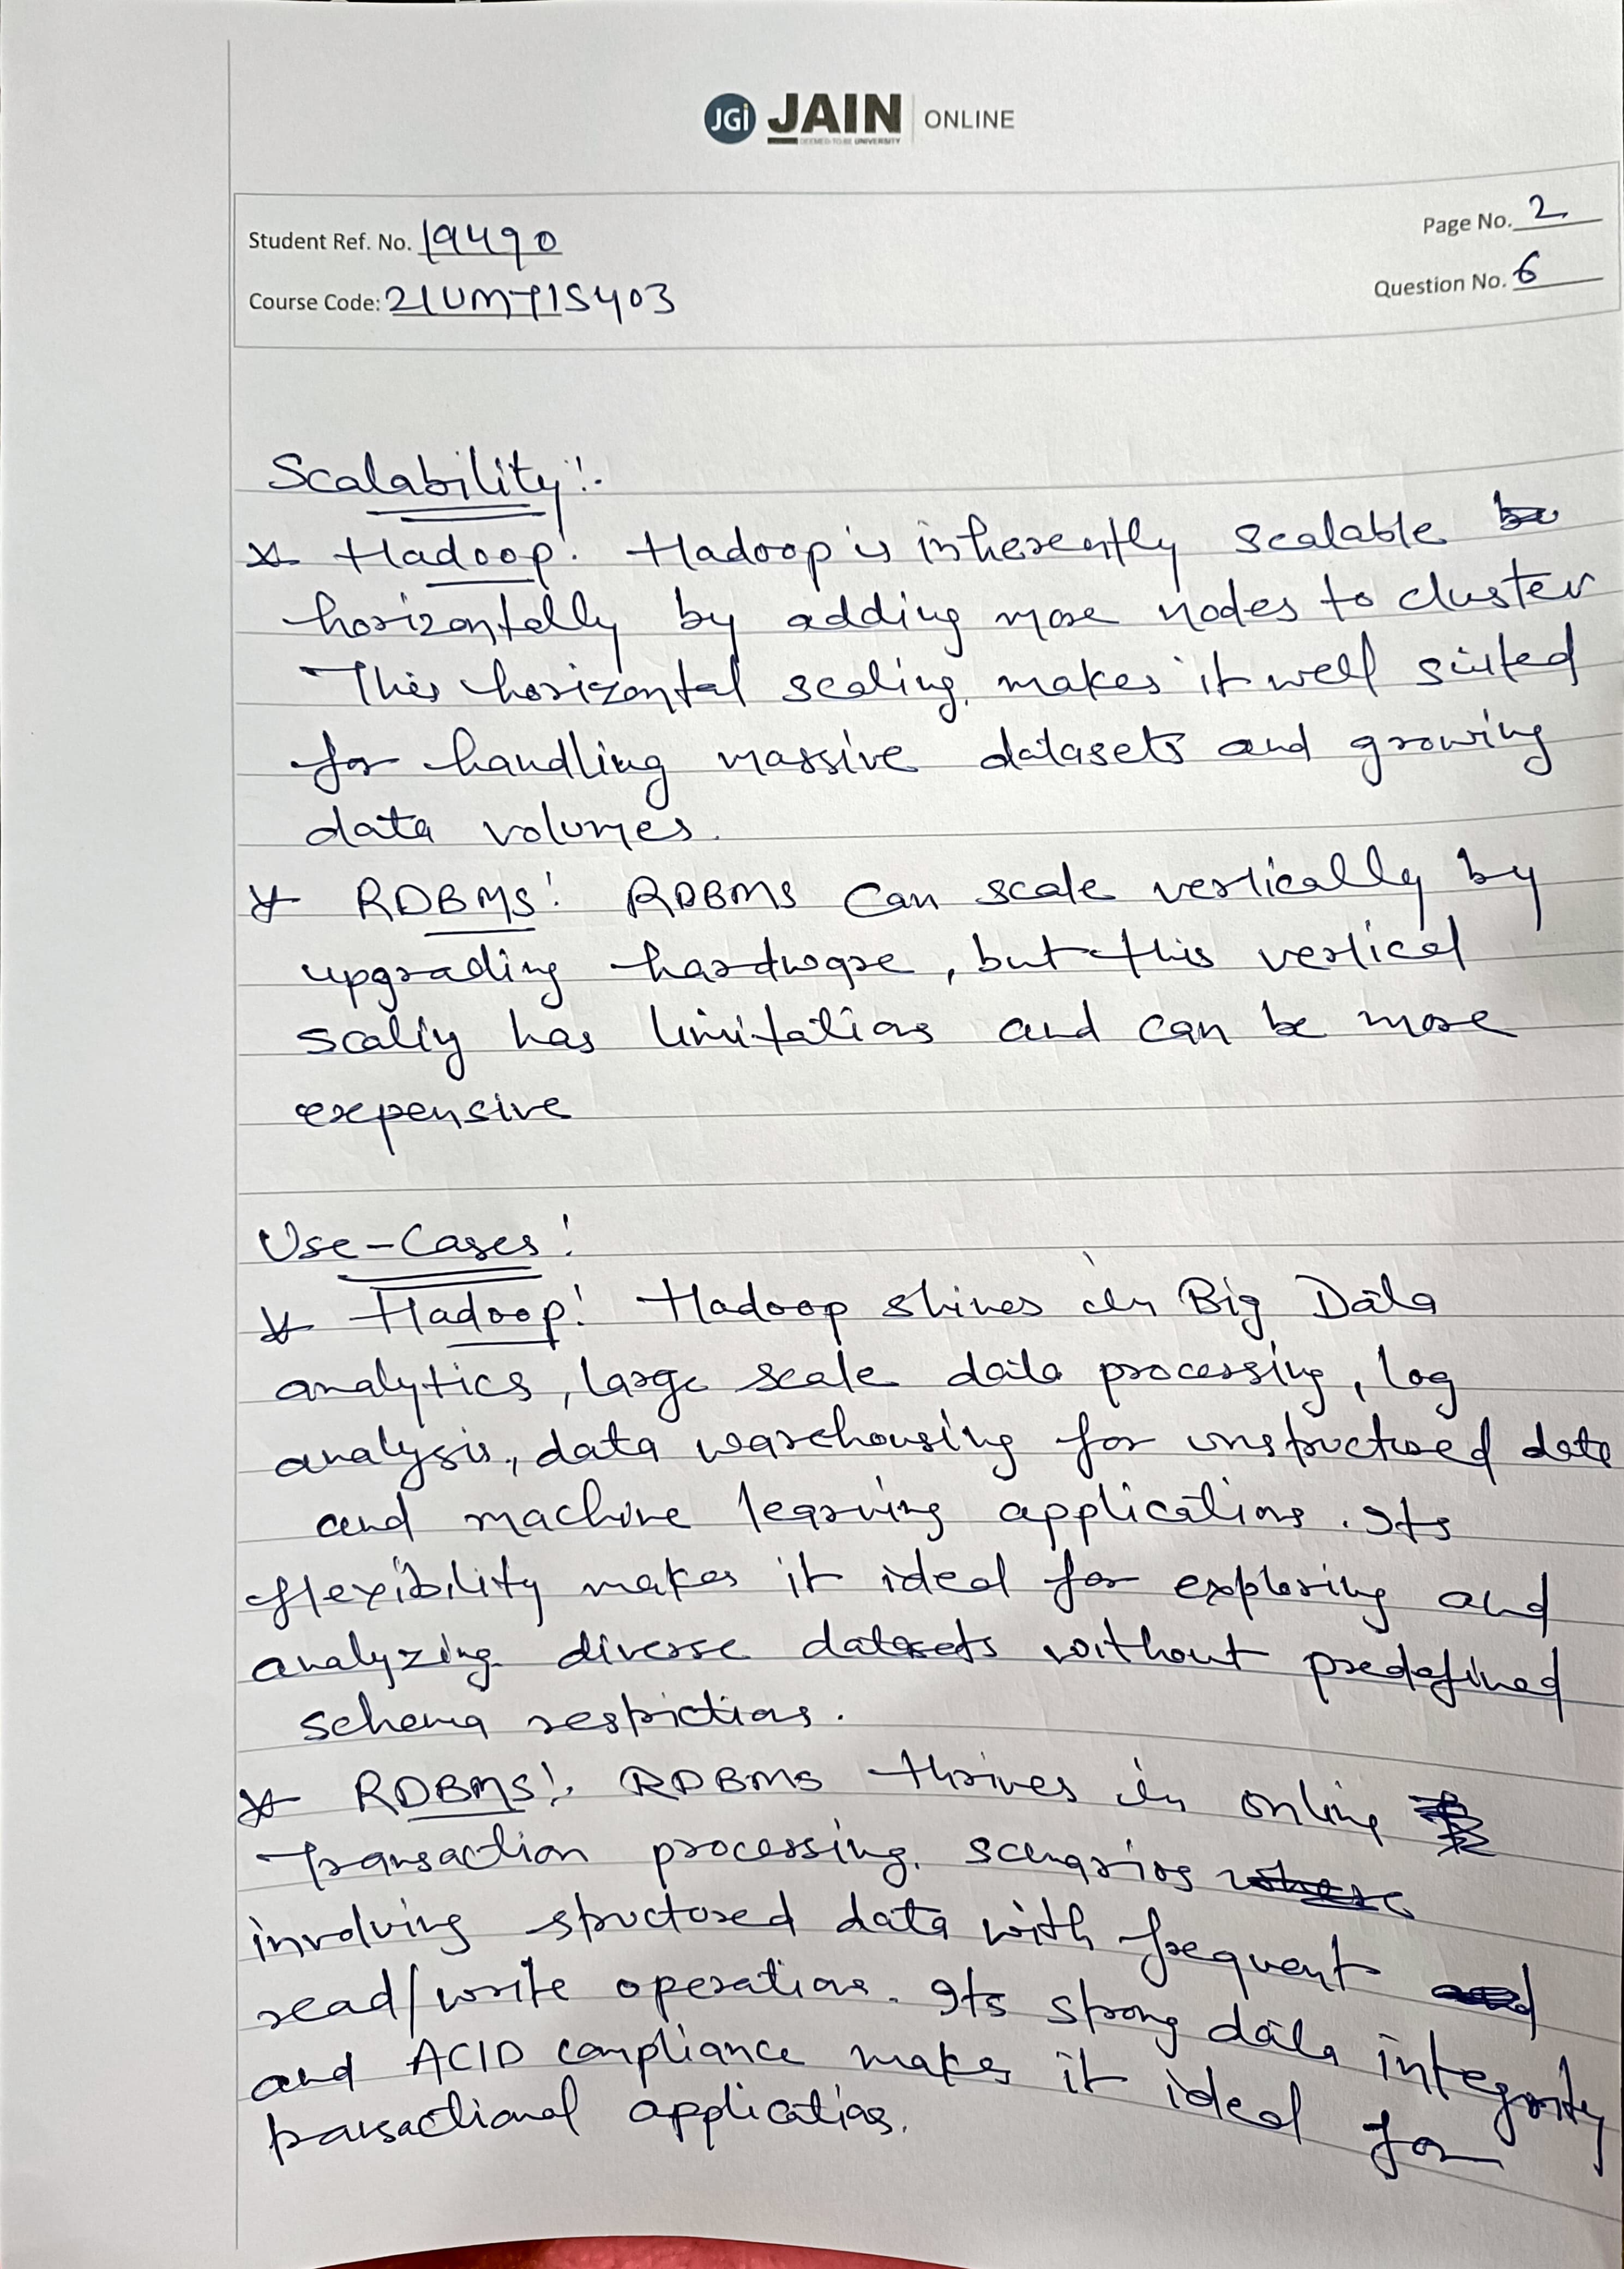 JGi JAIN ONLINE
DEEMED-TO-BE UNIVERSITY
Student Ref. No. 19490
Page No. 2
Course Code: 21UMTIS403
Question No. 6
Scalability:-
* Hadoop: Hadoop is inherently scalable
horizontally by adding more nodes to cluster
This horizontal scaling makes it well suited
for handling massive datasets and growing
data volumes.
* RDBMS: RDBMS can scale vertically by
upgrading hardware, but this vertical
scaling has limitations and can be more
expensive
Use-Cases:
* Hadoop: Hadoop shines in Big Data
analytics, large scale data processing, log
analysis, data warehousing for unstructured data
and machine learning applications. Its
flexibility makes it ideal for exploring and
analyzing diverse datasets without predefined
schema restrictions.
* RDBMS:- RDBMS thrives in online
transaction processing scenarios
involving structured data with frequent
read/write operations. Its strong data integrity
and ACID compliance makes it ideal for
transactional applications.